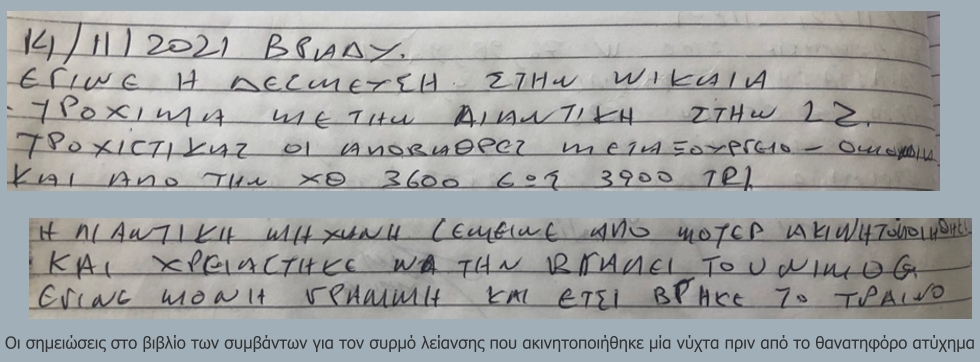 14/11/2021 ΒΡΑΔΥ.
ΕΓΙΝΕ Η ΔΕΣΜΕΥΣΗ ΣΤΗΝ ΝΙΚΑΙΑ
ΤΡΟΧΙΜΑ ΜΕ ΤΗΝ ΛΙΑΝΤΙΚΗ ΣΤΗΝ 2Σ.
ΤΡΟΧΙΣΤΙΚΑΣ ΟΙ ΑΠΟΒΑΘΡΕΣ ΜΕΤΑΞΟΥΡΓΕΙΟ - ΟΜΟΝΟΙΑ
ΚΑΙ ΑΠΟ ΤΗΝ ΧΘ 3600 ΕΩΣ 3900 ΤΡ1
Η ΛΙΑΝΤΙΚΗ ΜΗΧΑΝΗ ΞΕΜΕΙΝΕ ΑΠΟ ΜΟΤΕΡ ΑΚΙΝΗΤΟΠΟΙΗΘΗΚΕ
ΚΑΙ ΧΡΕΙΑΣΤΗΚΕ ΝΑ ΤΗΝ ΒΓΑΛΕΙ ΤΟ UNIMOG
ΕΓΙΝΕ ΜΟΝΗ ΓΡΑΜΜΗ ΚΑΙ ΕΤΣΙ ΒΡΗΚΕ ΤΟ ΤΡΑΙΝΟ
Οι σημειώσεις στο βιβλίο των συμβάντων για τον συρμό λείανσης που ακινητοποιήθηκε μία νύχτα πριν από το θανατηφόρο ατύχημα